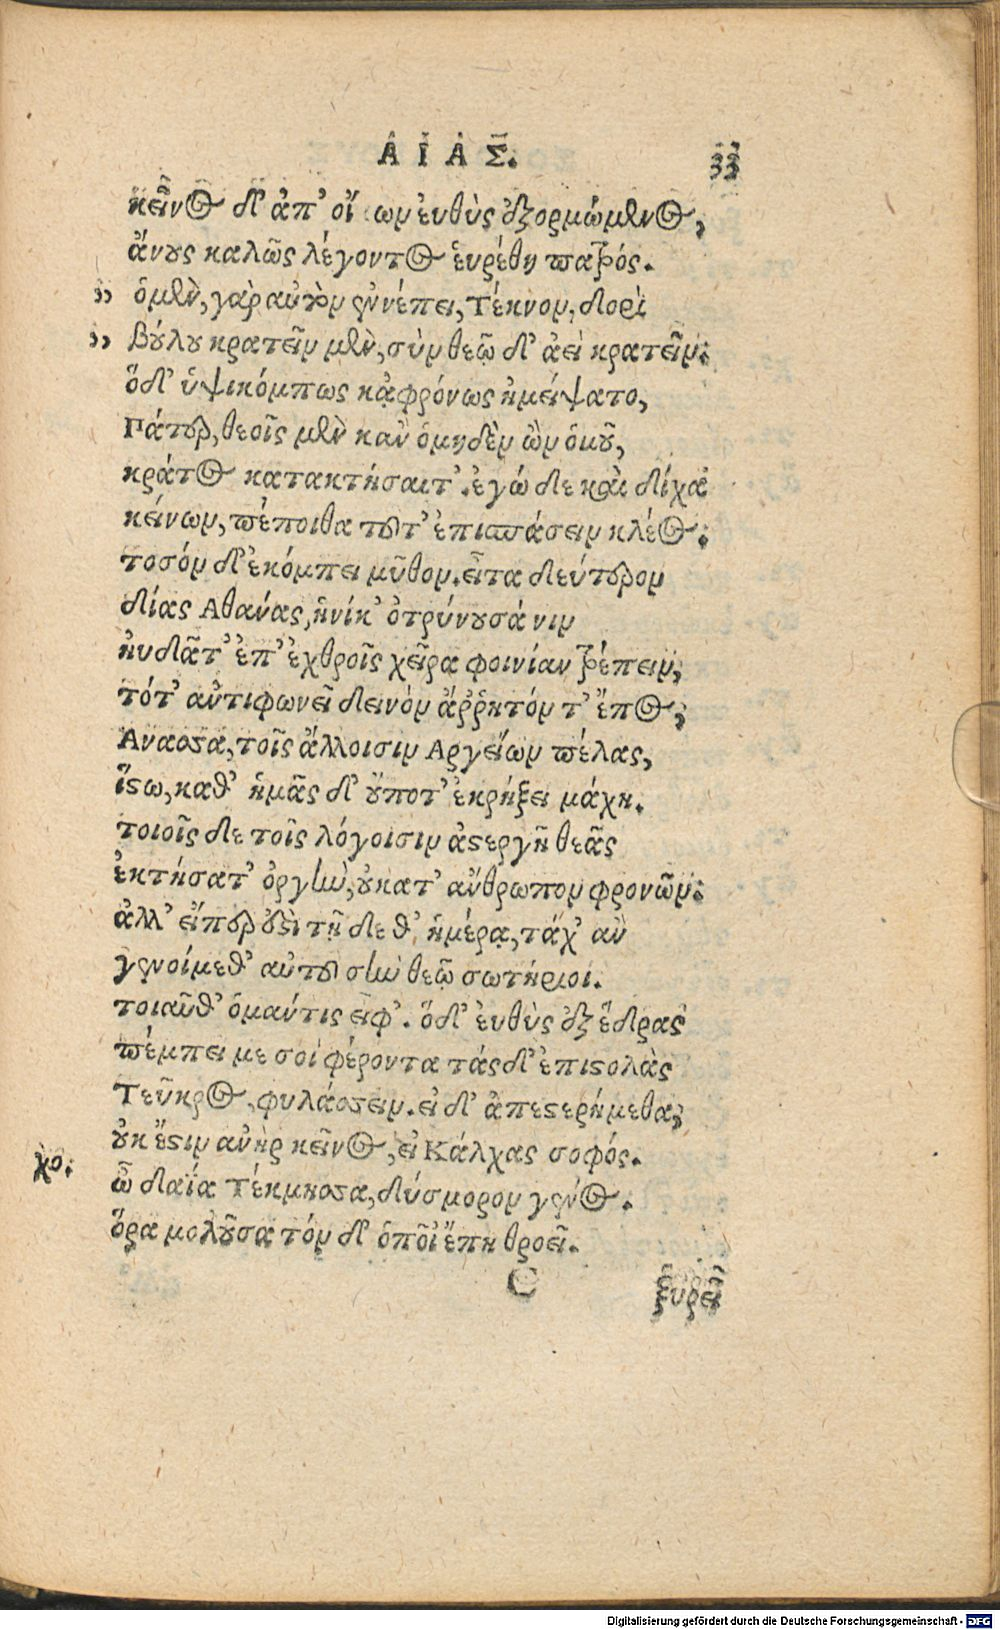 ΑΙΑΣ. 33
κεῖν⊙ δ' ἀπ' οἴ ων ἐυθὺς ἐξορμώμεν⊙,
ἄνους καλῶς λέγοντ⊙ ἑυρέθη πατρός.
,, ὁμὲν, γὰρ αὐτὸν ἐννέπει, Τέκνον, δορὶ
,, βούλου κρατεῖν μὲν, σὺν θεῷ δ' ἀεὶ κρατεῖν:
ὅδ' ὑψικόμπως κᾀφρόνως ἠμείψατο,
Πάτερ, θεοῖς μὲν κἂν ὁμηδὲν ὢν ὁμοῦ,
κράτ⊙ κατακτήσαιτ'. ἐγώ δε καὶ δίχα
κείνων, πέποιθα τουτ' ἐπισπάσειν κλέ⊙:
τοσόν δ' ἐκόμπει μῦθον. εἶτα δεύτερον
δίας Αθανάς, ἡνίκ' ὀτρύνουσά νιν
ἠυδᾶτ' ἐπ' ἐχθροῖς χεῖρα φοινίαν τρέπειν,
τότ' αὐτιφωνεῖ δεινὸν ἄῤῥητόν τ' ἔπ⊙,
Ανασσα, τοῖς ἄλλοισιν Αργείων πέλας,
ἵστω, καθ' ἡμᾶς δ' οὔποτ' ἐκρήξει μάχη.
τοιοῖς δε τοῖς λόγοισιν ἀστεργῆ θεᾶς
ἐκτήσατ' ὀργὴν, ὀυκατ' αὔθρωπον φρονῶν:
ἀλλ' εἴπερ ἐστὶ τῇ δε θ' ἡμέρᾳ, τάχ' αὒ
γενοίμεθ' αὐτου σὺν θεῷ σωτήριοι.
τοιαῦθ' ὁμαύτις εἶφ'. ὅδ' ἐυθὺς ἐξ ἕδρας
πέμπει με σοὶ φέροντα τάςδ' ἐπιστολὰς
Τεῦκρ⊙, φυλάσσειν. εἰ δ' ἀπεστερήμεθα,
οὐκ ἔστιν αὐὴρ κεῖν⊙, εἰ Κάλχας σοφός.
χο. ὦ δαΐα Τέκμησσα, δύσμορον γέν⊙.
ὅρα μολοῦσα τόν δ' ὁποῖ ἔπη θροεῖ.
C ξυρεῖ
Digitalisierung gefördert durch die Deutsche Forschungsgemeinschaft - DFG